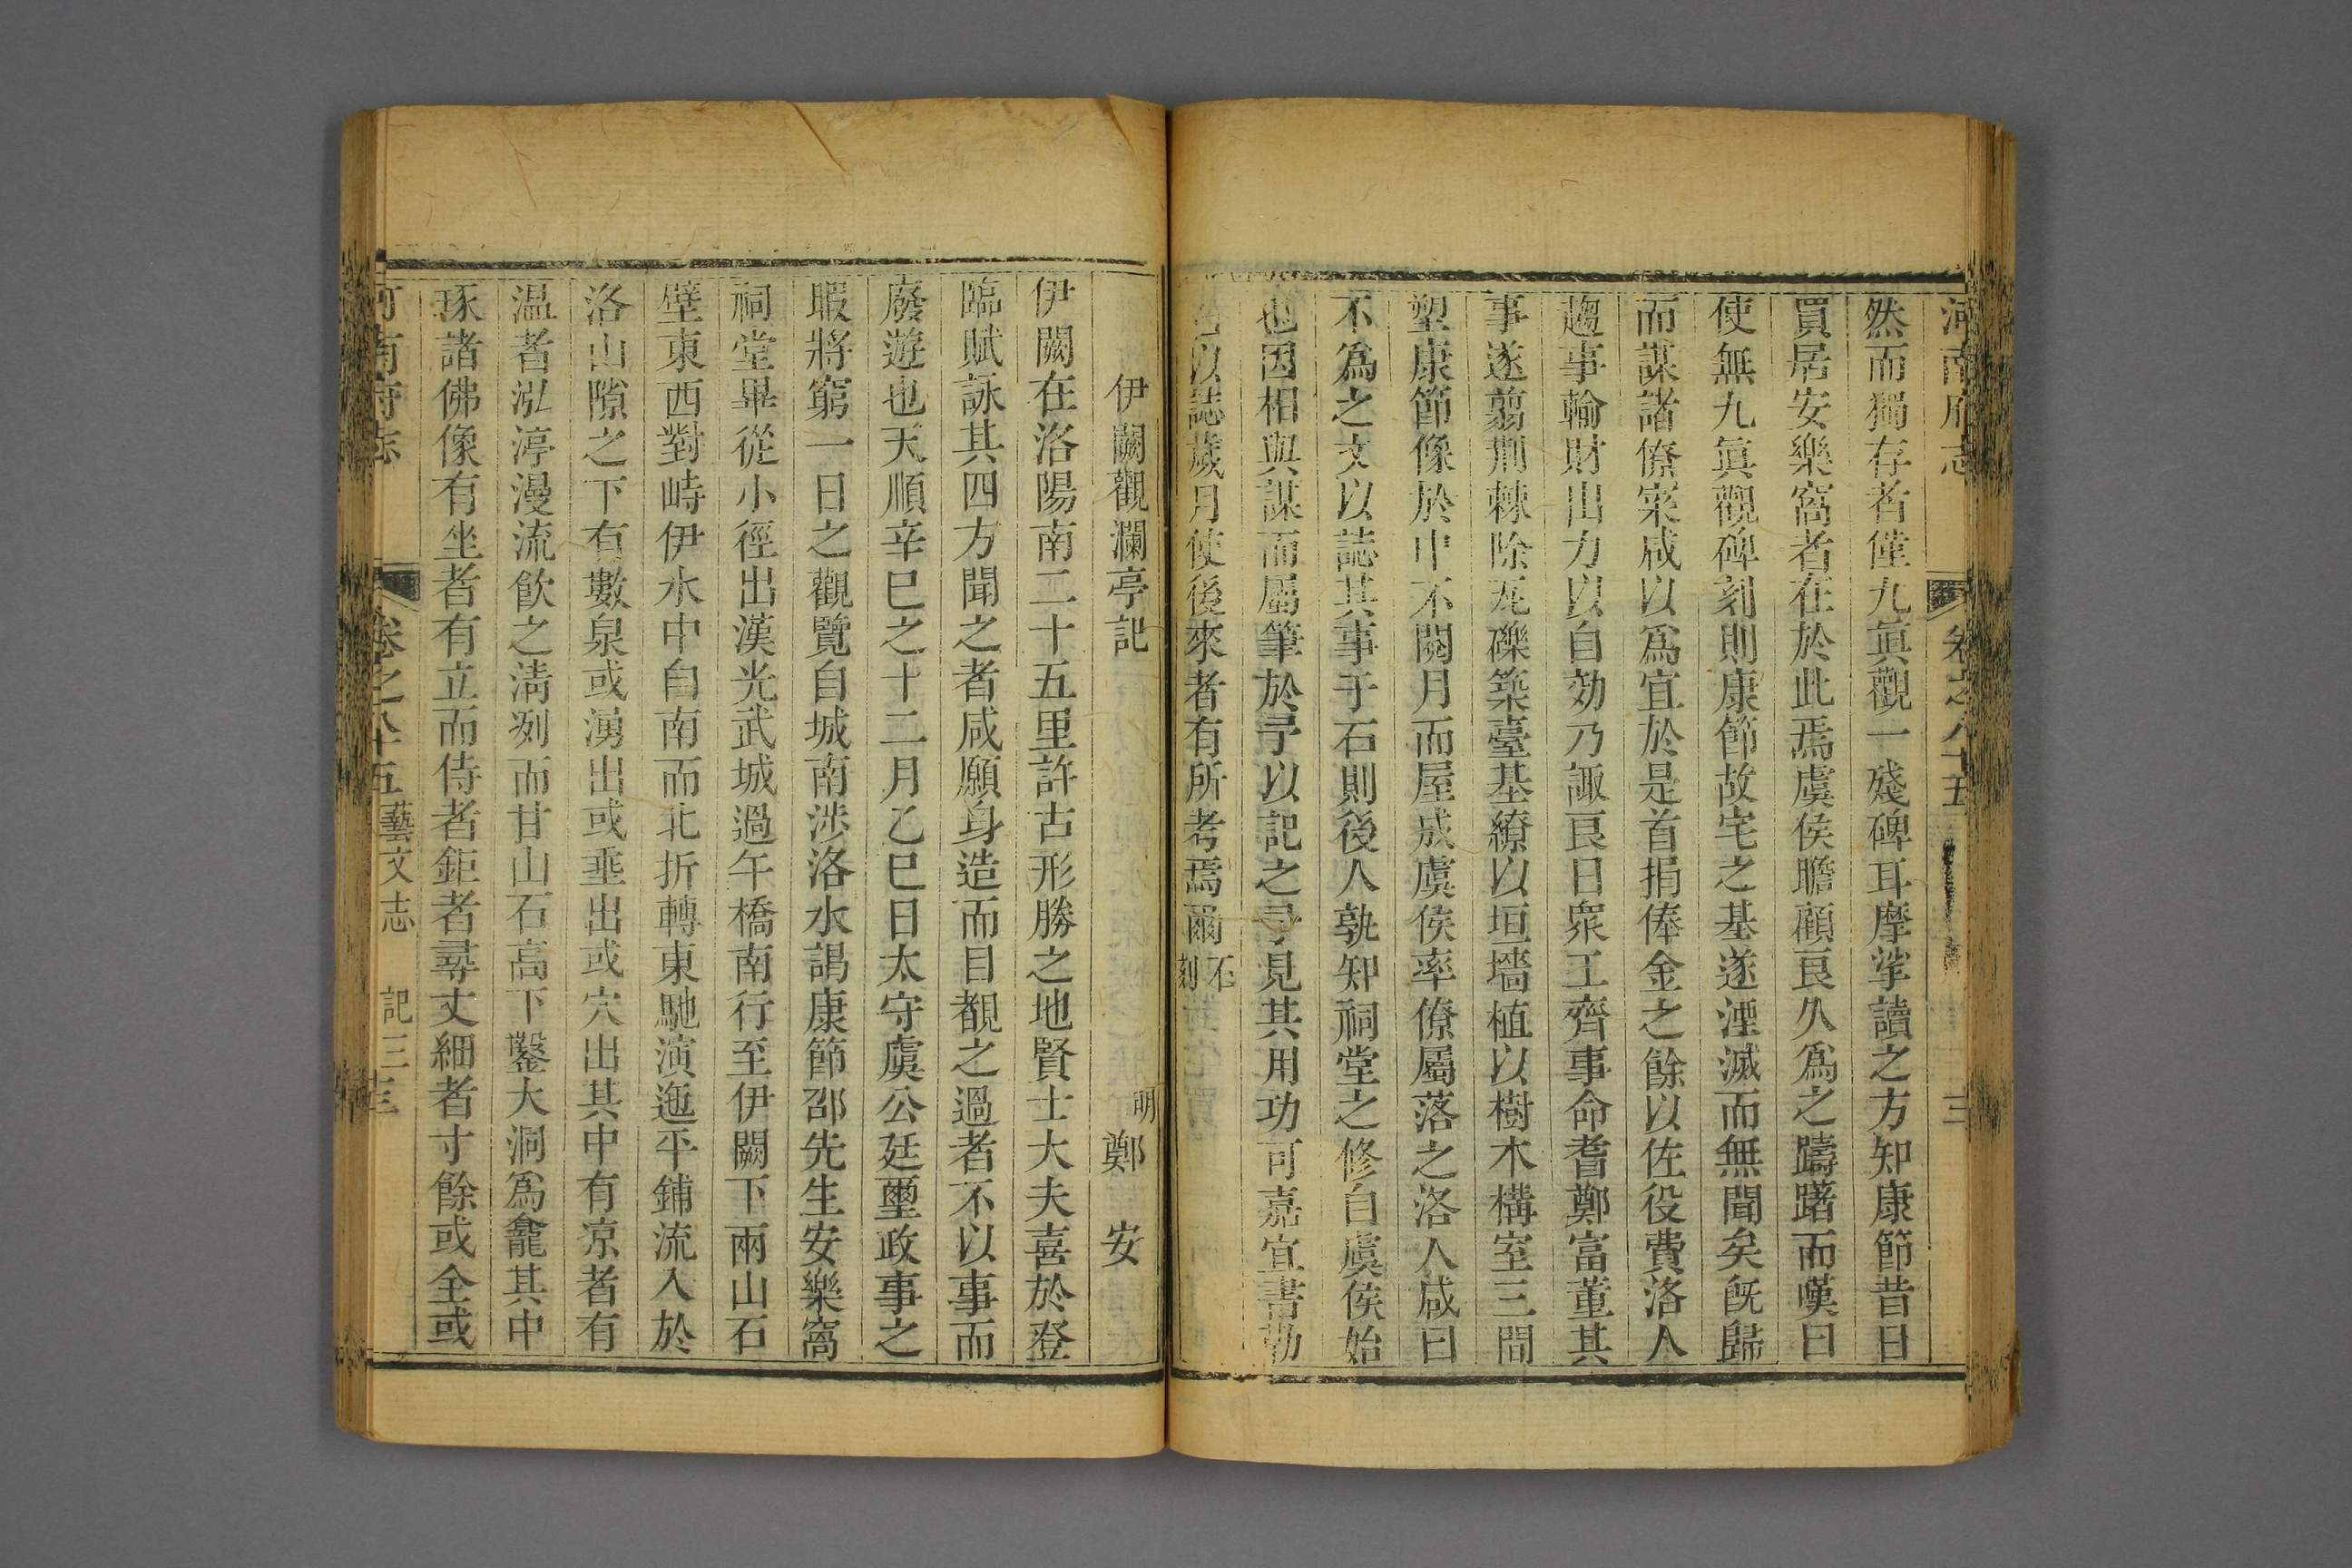 河南府志 卷之八十五 三
然而獨存者僅九真觀一殘碑耳摩挲讀之方知康節昔日
買居安樂窩者在於此焉虞侯瞻顧良久爲之躊躇而嘆曰
使無九真觀碑刻則康節故宅之基遂湮滅而無聞矣旣歸
而謀諸僚寀咸以爲宜於是首捐俸金之餘以佐役費洛人
趨事輸財出力以自効乃諏良日眾工齊事命耆鄭富董其
事遂翦荆棘除瓦礫築臺基繚以垣墻植以樹木構室三間
塑康節像於中不閱月而屋成虞侯率僚屬落之洛人咸曰
不爲之文以誌其事于石則後人孰知祠堂之修自虞侯始
也因相與謀而屬筆於予以記之予見其用功可嘉宜書勒
以誌歲月使後來者有所考焉爾石刻
伊闕觀瀾亭記 明鄭 安
伊闕在洛陽南二十五里許古形勝之地賢士大夫喜於登
臨賦詠其四方聞之者咸願身造而目覩之過者不以事而
廢遊也天順辛巳之十二月乙巳日太守虞公廷璽政事之
暇將窮一日之觀覽自城南涉洛水謁康節邵先生安樂窩
祠堂畢從小徑出漢光武城過午橋南行至伊闕下兩山石
壁東西對峙伊水中自南而北折轉東馳演迤平鋪流入於
洛山隙之下有數泉或湧出或垂出或穴出其中有凉者有
温者泓渟漫流飲之淸冽而甘山石高下鑿大洞爲龕其中
琢諸佛像有坐者有立而侍者鉅者尋丈細者寸餘或全或
河南府志 卷之八十五 藝文志 記三 三